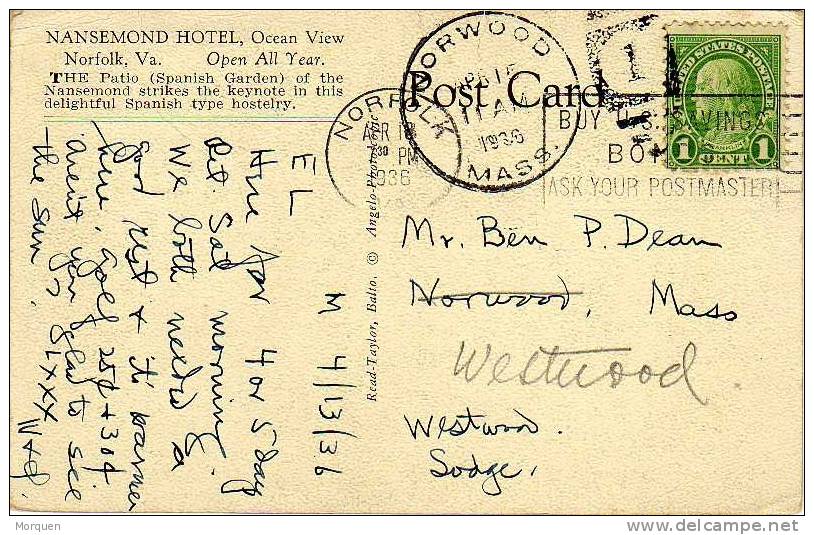 NANSEMOND HOTEL, Ocean View
Norfolk, Va. Open All Year.
THE Patio (Spanish Garden) of the
Nansemond strikes the keynote in this
delightful Spanish type hostelry.
Post Card
NORWOOD
APR 15
11 AM
1936
MASS.
NORFOLK
APR 13
30 PM
1936
1
BUY U.S. SAVINGS
BON
ASK YOUR POSTMASTER
UNITED STATES POSTAGE
FRANKLIN
1 CENT 1
Read-Taylor, Balto. © Angelo-Photoscenic
M 4/13/36
E L
Here for 4 or 5 days
Sat morning.
We both needed a
good rest & it warmer
here. Golf 25¢ & 30¢.
arent you glad to see
the sun. LXXX
Mr. Ben P. Dean
Norwood, Mass
Westwood.
Westwood.
Lodge,
Morquen
delcampe.net